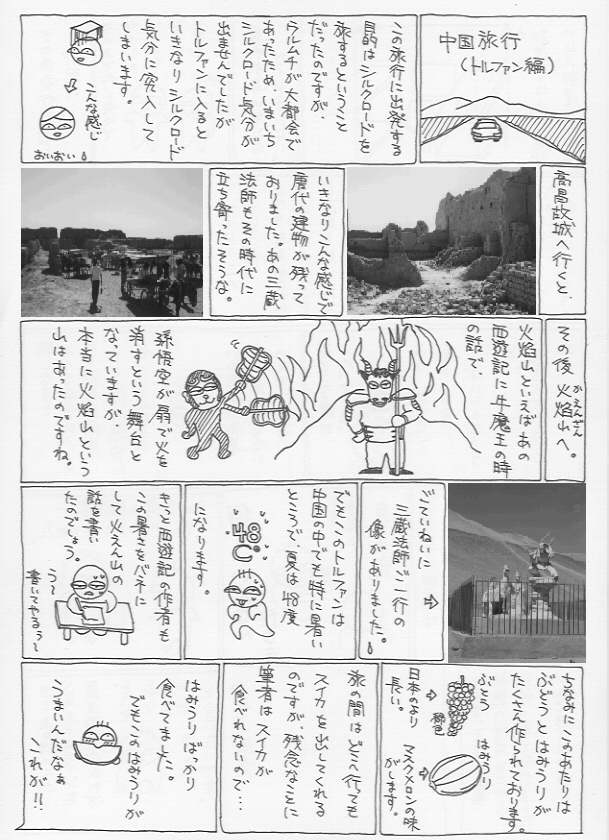 中国旅行
(トルファン編)
この旅行に出発する
目的はシルクロードを
旅するということ
だったのですが、
ウルムチが大都会で
あったため、いまいち
シルクロード気分が
出ませんでしたが
トルファンに入ると
いきなりシルクロード
気分に突入して
しまいます。
こんな感じ
おいおい
高昌故城へ行くと、
いきなりこんな感じで
唐代の建物が残って
おりました。あの三蔵
法師もその時代に
立ち寄ったそうな。
その後 火焰山へ。
かえんざん
火焰山といえばあの
西遊記に牛魔王の時
の話で、
孫悟空が扇で火を
消すという舞台と
なっていますが、
本当に火焰山という
山はあったのですね。
ごていねいに
三蔵法師ご一行の
像がありました。
でもこのトルファンは
中国の中でも特に暑い
ところで、夏は48度
になります。
48
℃
きっと西遊記の作者も
この暑さをバネに
して火えん山の
話を書い
たのでしょう。
う〜
書いてやるぅ〜
ちなみにこのあたりは
ぶどうとはみうりが
たくさん作られております。
ぶどう
緑色
日本のより
長い。
はみうり
マスクメロンの味
がします。
旅の間はどこへ行っても
スイカを出してくれる
のですが、残念なことに
筆者はスイカが
食べれないので…
はみうりばっかり
食べてました。
でもこのはみうりが
うまいんだなぁ
これが!!